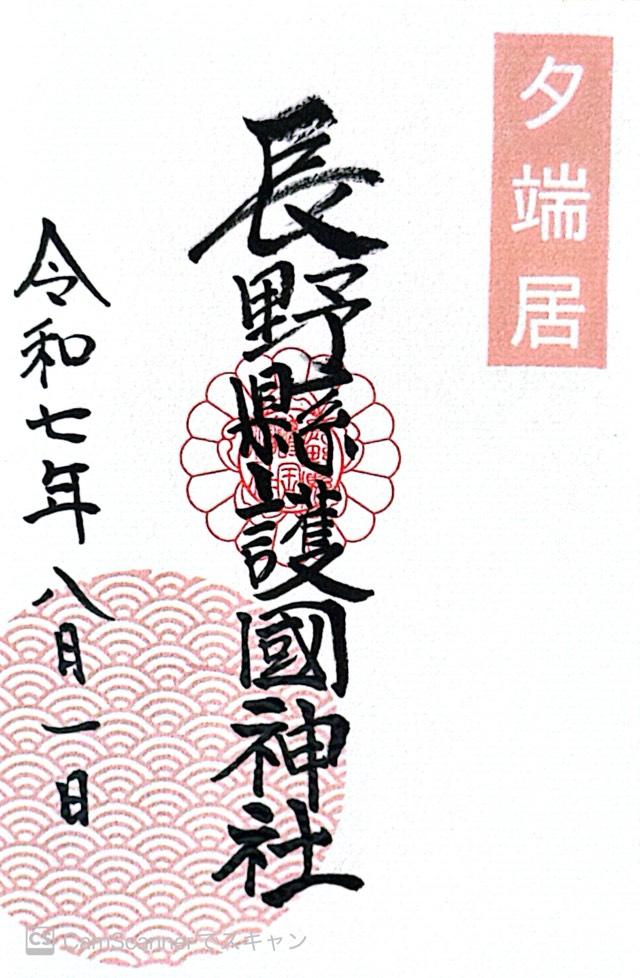 夕端居
長野縣護國神社
令和七年八月一日
CS CamScannerでスキャン